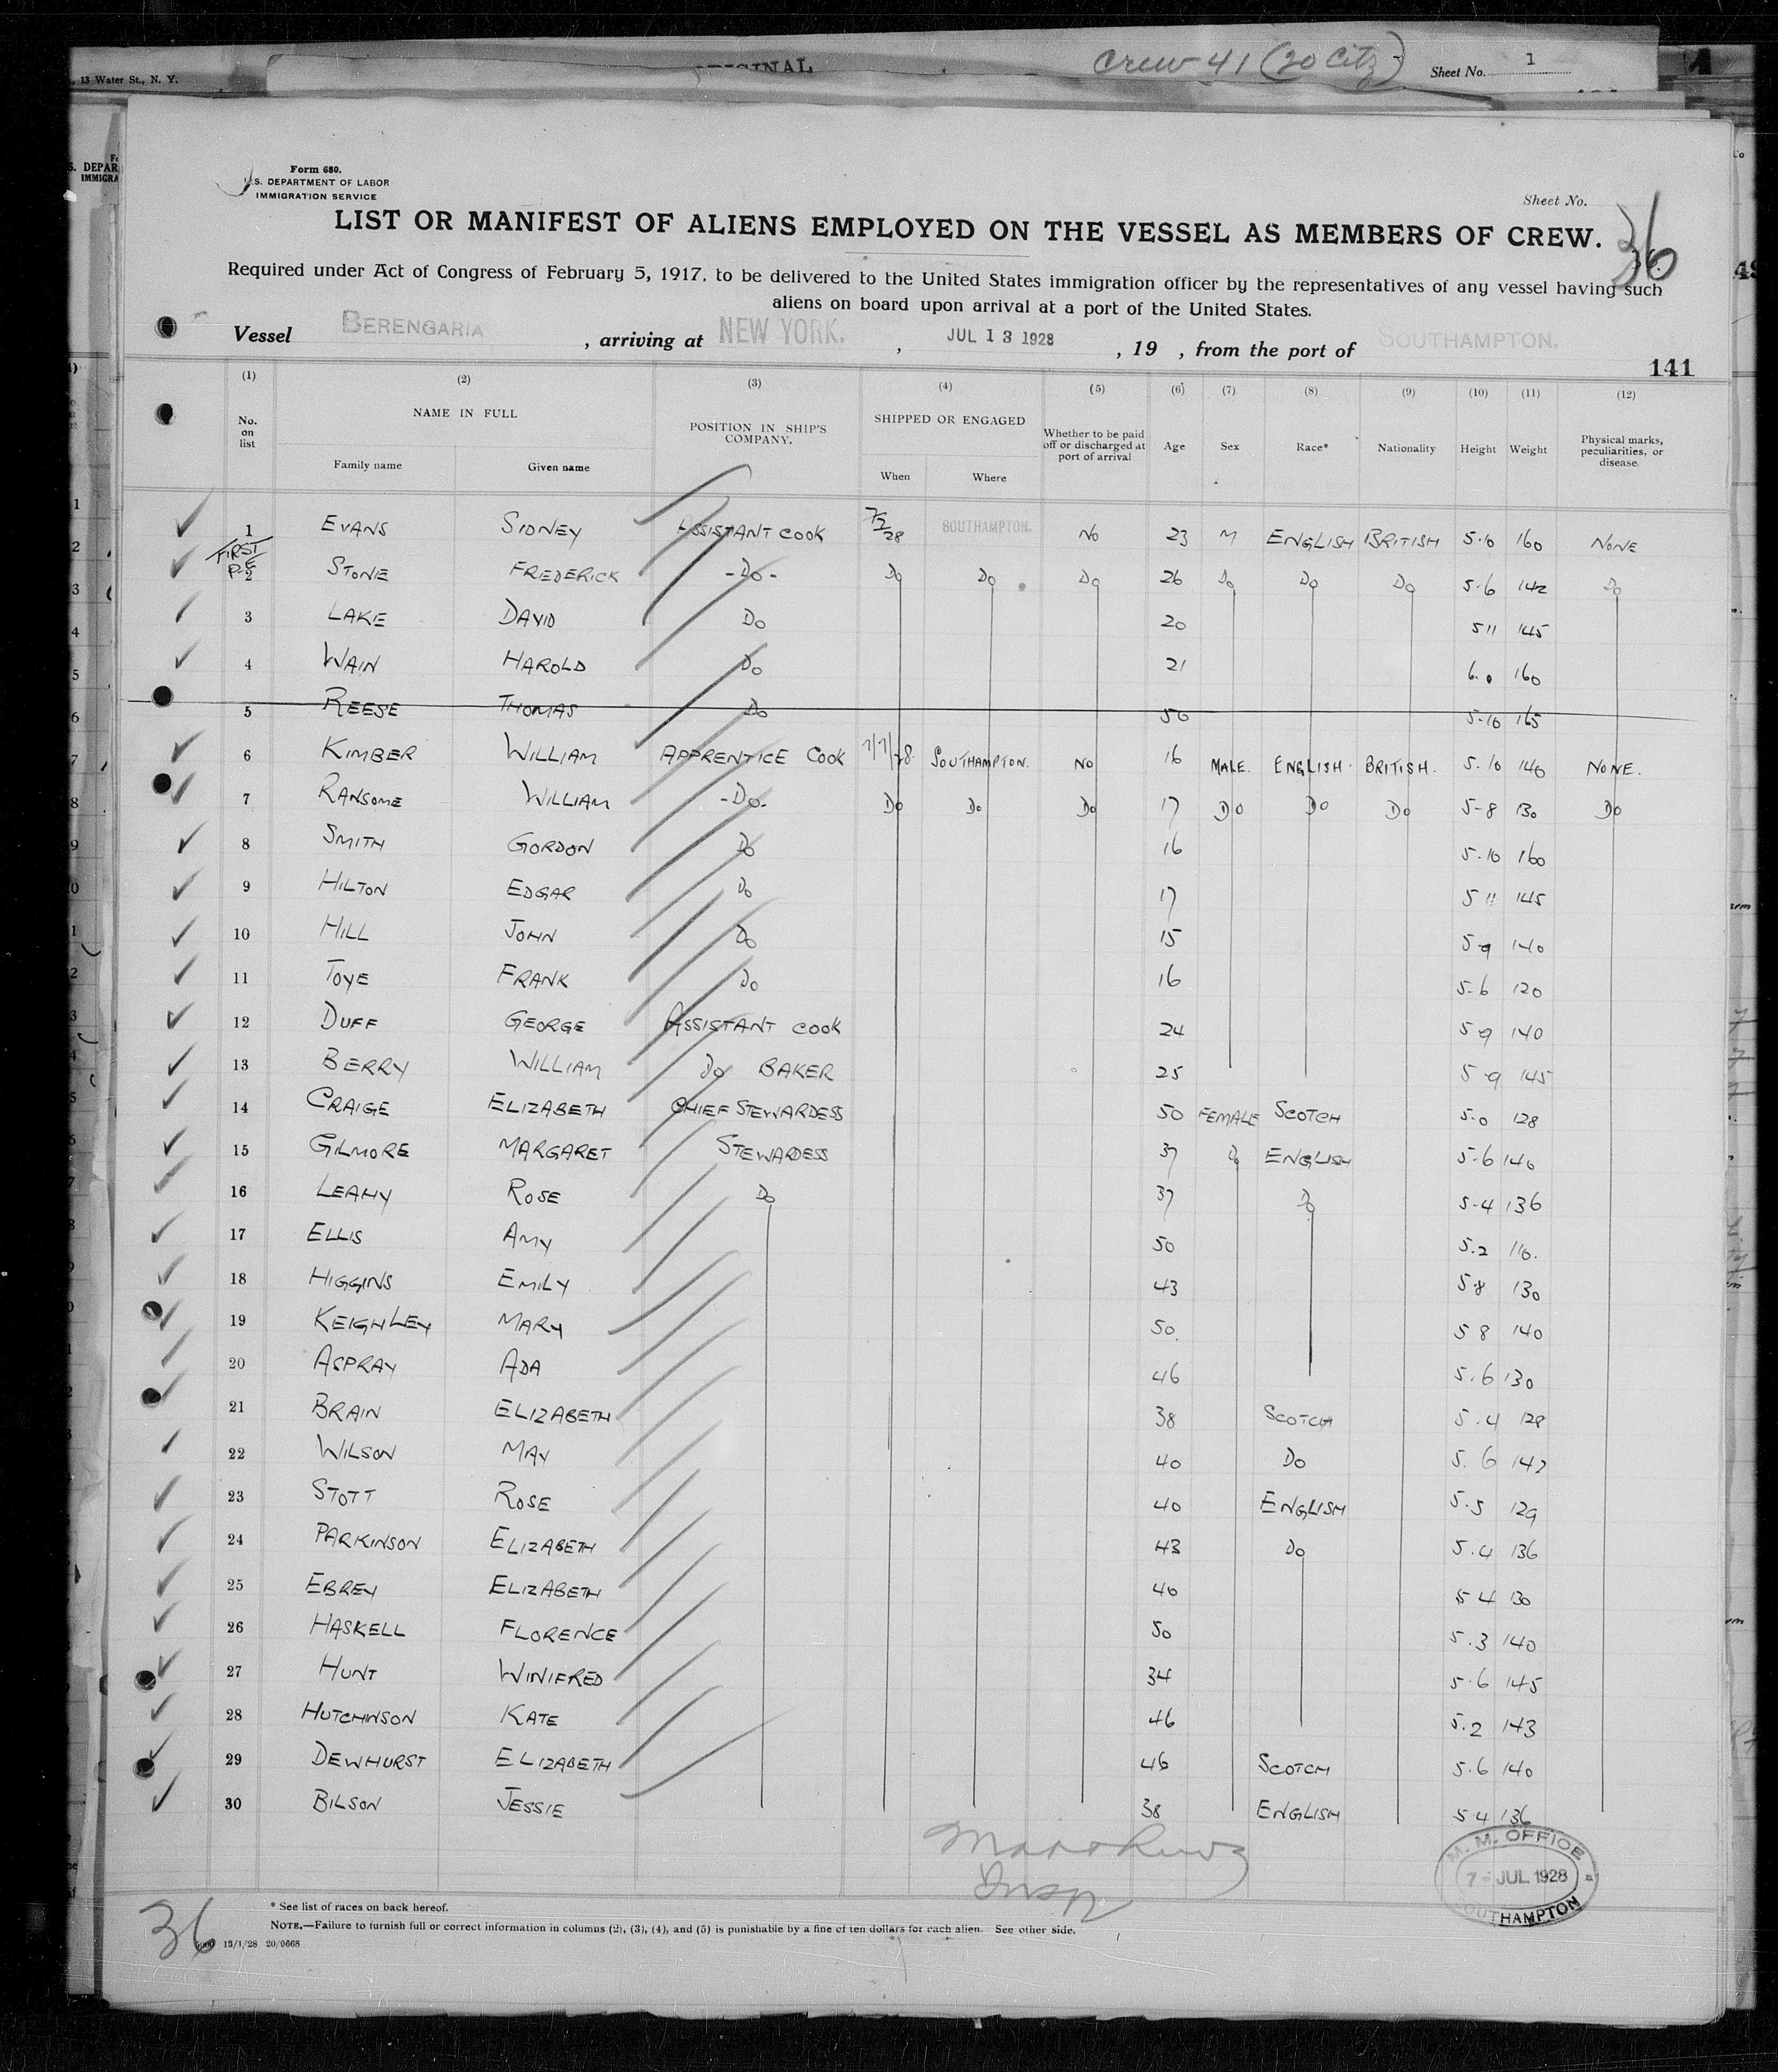 , 13 Water St., N. Y.
ORIGINAL
Crew 41 (20 Citz)
Sheet No. 1
Form 680.
U.S. DEPARTMENT OF LABOR
IMMIGRATION SERVICE
Sheet No.
36
LIST OR MANIFEST OF ALIENS EMPLOYED ON THE VESSEL AS MEMBERS OF CREW.
Required under Act of Congress of February 5, 1917, to be delivered to the United States immigration officer by the representatives of any vessel having such
aliens on board upon arrival at a port of the United States.
Vessel BERENGARIA , arriving at NEW YORK. , JUL 13 1928 , 19 , from the port of SOUTHAMPTON.
141
(1) (2) (3) (4) (5) (6) (7) (8) (9) (10) (11) (12)
No. on list NAME IN FULL POSITION IN SHIP'S COMPANY. SHIPPED OR ENGAGED Whether to be paid off or discharged at port of arrival Age Sex Race* Nationality Height Weight Physical marks, peculiarities, or disease
Family name Given name When Where
1 EVANS SIDNEY ASSISTANT COOK 7/7/28 SOUTHAMPTON. NO 23 M ENGLISH BRITISH 5.10 160 NONE
FIRST
2 STONE FREDERICK -DO- DO DO DO 26 DO DO DO 5-6 142 DO
3 LAKE DAVID DO 20 5 11 145
4 WAIN HAROLD DO 21 6.0 160
5 REESE THOMAS DO 50 5-10 165
6 KIMBER WILLIAM APPRENTICE COOK 7/7/28. SOUTHAMPTON. NO 16 MALE. ENGLISH. BRITISH. 5.10 140 NONE.
7 RANSOME WILLIAM -DO- DO DO DO 17 DO DO DO 5-8 130 DO
8 SMITH GORDON DO 16 5.10 160
9 HILTON EDGAR DO 17 5 11 145
10 HILL JOHN DO 15 5-9 140
11 TOYE FRANK DO 16 5-6 120
12 DUFF GEORGE ASSISTANT COOK 24 5-9 140
13 BERRY WILLIAM DO BAKER 25 5-9 145
14 CRAIGE ELIZABETH CHIEF STEWARDESS 50 FEMALE SCOTCH 5.0 128
15 GILMORE MARGARET STEWARDESS 37 DO ENGLISH 5-6 140
16 LEAHY ROSE DO 37 DO 5-4 136
17 ELLIS AMY 50 5.2 116.
18 HIGGINS EMILY 43 5.8 130
19 KEIGHLEY MARY 50. 5 8 140
20 ASPRAY ADA 46 5.6 130
21 BRAIN ELIZABETH 38 SCOTCH 5.4 128
22 WILSON MAY 40 DO 5.6 142
23 STOTT ROSE 40 ENGLISH 5.5 129
24 PARKINSON ELIZABETH 43 DO 5.4 136
25 EBREY ELIZABETH 40 5 4 130
26 HASKELL FLORENCE 50 5.3 140
27 HUNT WINIFRED 34 5.6 145
28 HUTCHINSON KATE 46 5.2 143
29 DEWHURST ELIZABETH 46 SCOTCH 5.6 140
30 BILSON JESSIE 38 ENGLISH 5.4 136
Insp
M. M. OFFICE
7 - JUL 1928
SOUTHAMPTON
* See list of races on back hereof.
NOTE.—Failure to furnish full or correct information in columns (2), (3), (4), and (5) is punishable by a fine of ten dollars for each alien. See other side.
36
13/1/28 20/0668